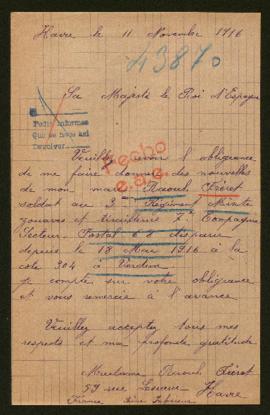 Havre le 11 Novembre 1916
43870
Sa Majesté le Roi d'Espagne
Pedir informes
Que se haga así
Devolver
Hecho
Veuillez avoir l'obligeance
de me faire donner des nouvelles
de mon mari Raoul Fréret
soldat au 3me Régiment Mixte
zouaves et tirailleurs 7e Compagnie
Secteur Postal 68 disparu
depuis le 18 Mai 1916 à la
côte 304 à Verdun
je compte sur votre obligeance
et vous remercie à l'avance
Veuillez accepter tous mes
respects et ma profonde gratitude
Madame Raoul Fréret
59 rue Havre
France Seine Inférieure